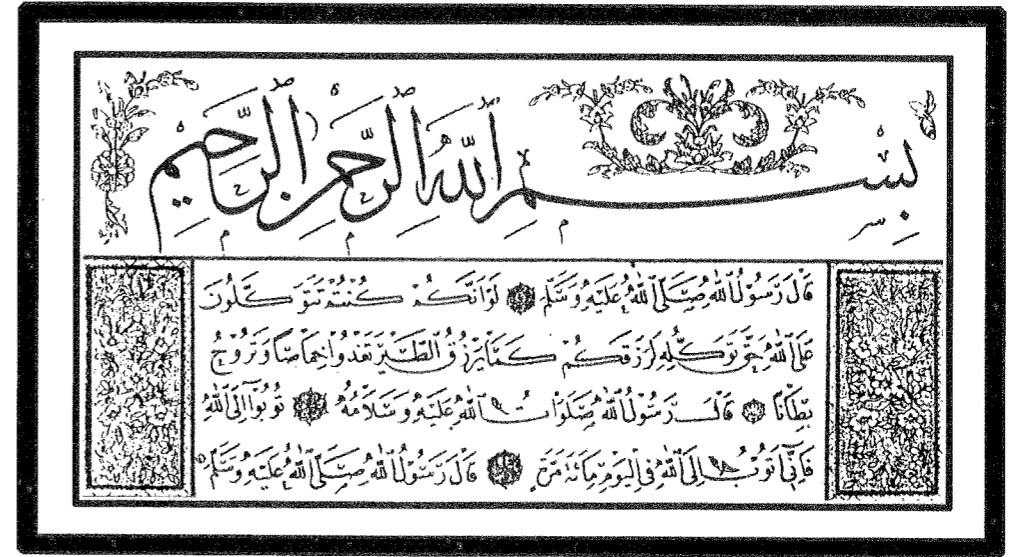 بِسْمِ اللَّهِ الرَّحْمَنِ الرَّحِيمِ
قَالَ رَسُولُ اللَّهِ صَلَّى اللَّهُ عَلَيْهِ وَسَلَّمَ لَوْ أَنَّكُمْ كُنْتُمْ تَتَوَكَّلُونَ
عَلَى اللَّهِ حَقَّ تَوَكُّلِهِ لَرَزَقَكُمْ كَمَا يَرْزُقُ الطَّيْرَ تَغْدُوا خِمَاصًا وَتَرُوحُ
بِطَانًا قَالَ رَسُولُ اللَّهِ صَلَوَاتُ اللَّهِ عَلَيْهِ وَسَلَامُهُ تُوبُوا إِلَى اللَّهِ
فَإِنِّي أَتُوبُ إِلَى اللَّهِ فِي الْيَوْمِ مِائَةَ مَرَّةٍ قَالَ رَسُولُ اللَّهِ صَلَّى اللَّهُ عَلَيْهِ وَسَلَّمَ